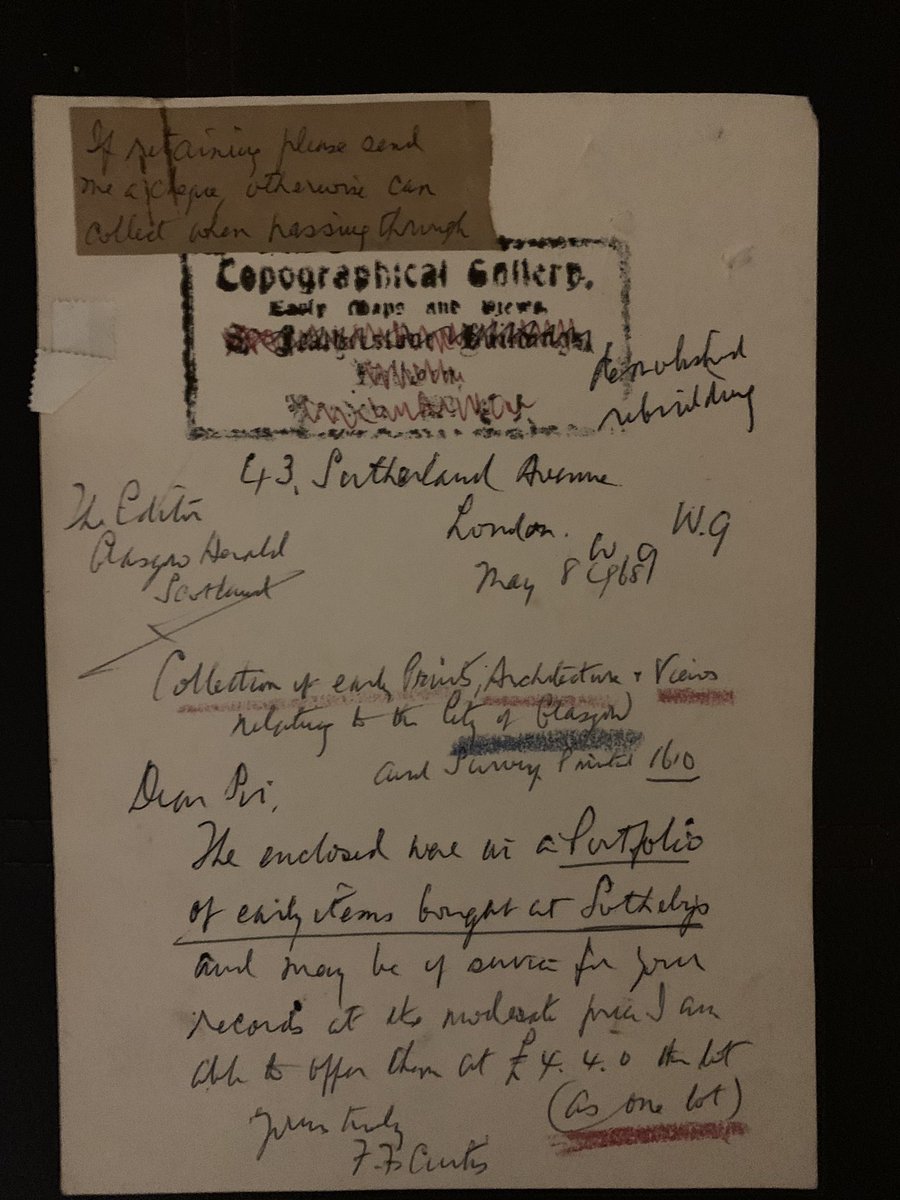 If retaining please send
me a cheque, otherwise can
collect when passing through
Topographical Gallery.
Early Maps and Views.
Buildings,
demolished
rebuilding
43, Sutherland Avenue
The Editor
London. W.9
Glasgow Herald
W.9
Scotland
May 8 1968
Collection of early Prints, Architecture + Views
relating to the City of Glasgow
and Survey Printed
Dear Sir,
The enclosed were in a Portfolio
of early items bought at Sothebys
and may be of service for your
records at the moderate price I am
able to offer them at £4.4.0 the lot
(as one lot)
Yours truly
Curtis